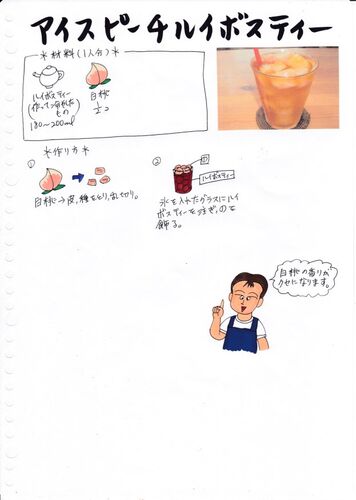 アイスピーチルイボスティー
*材料(1人分)*
ルイボスティー
(作って冷めた
もの
180〜200ml
白桃
½コ
*作り方*
①
白桃→皮、種をとり、乱切り。
②
①
ルイボスティー
氷を入れたグラスにルイ
ボスティーを注ぎ、①を
飾る。
白桃の香りが
クセになります。